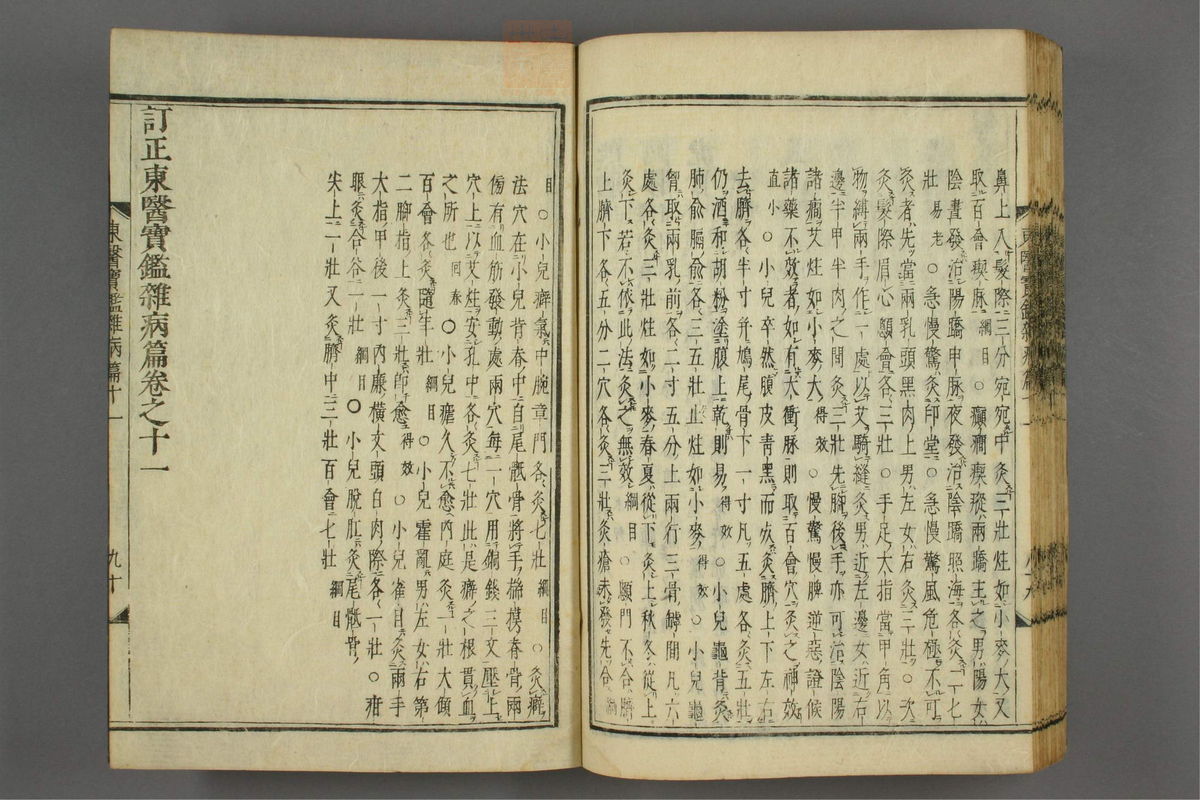 鼻上入髮際三分宛宛中灸三壯炷如小麥大又
取百會瘈脉綱目○癲癎瘈瘲兩蹻主之男陽女
陰晝發治陽蹻申脉夜發治陰蹻照海各灸二七
壯易老○急慢驚灸印堂○急慢驚風危極不可
灸者先當兩乳頭黑肉上男左女右灸三壯○次
灸髮際眉心顖會各三壯○手足大指當甲角以
物縛兩手作一處以艾騎縫灸男近左邊女近右
邊半甲半肉之間灸三壯先脚後手亦可治陰陽
諸癎艾炷如小麥大得效○慢驚慢脾逆惡證候
諸藥不效者如有大衝脉則取百會穴灸之神效
直小○小兒卒然腹皮靑黑而灸臍上下左右
去臍各半寸幷鳩尾骨下一寸凡五處各灸五壯
仍酒和胡粉塗腹上乾則易得效○小兒龜背灸
肺兪膈兪各三五壯止炷如小麥得效○小兒龜
胷取兩乳前各二寸五分上兩行三骨罅間凡六
處各灸三壯炷如小麥春夏從下灸上秋冬從上
灸下若不依此法灸之無效綱目○顖門不合臍
上臍下各五分二穴各灸三壯灸瘡未發先合綱
目○小兒癖氣中脘章門各灸七壯綱目○灸癖
法穴在小兒背脊中自尾骶骨將手揣摸脊骨兩
傍有血筋發動處兩穴每一穴用銅錢三文壓上
穴上以艾炷安孔中各灸七壯此是癖之根貫血
之所也回春○小兒瘧久不愈內庭灸一壯大傾
百會各灸隨年壯綱目○小兒霍亂男左女右第
二脚指上灸三壯卽愈得效○小兒雀目灸兩手
大指甲後一寸內廉橫文頭白肉際各一壯○疳
眼灸合谷一壯綱目○小兒脫肛灸尾骶骨
尖上一壯又灸臍中三壯百會七壯綱目
訂正東醫寶鑑雜病篇卷之十一
東醫寶鑑雜病篇十一
九十